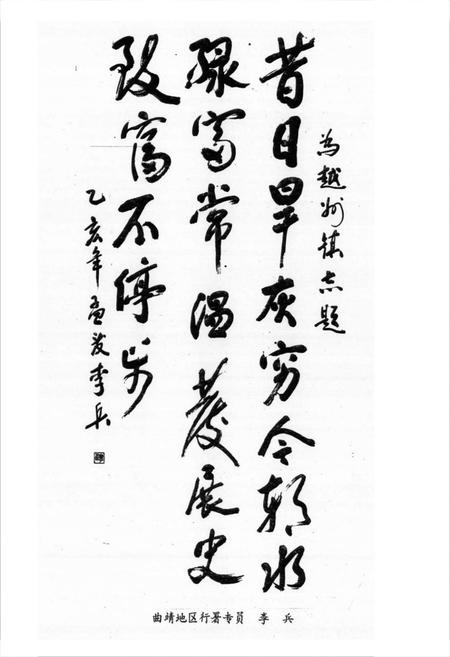 为越州镇志题
昔日旱灰穷今朝水
绿富常温发展史
致富不停步
乙亥年孟发李兵
曲靖地区行署专员 李 兵